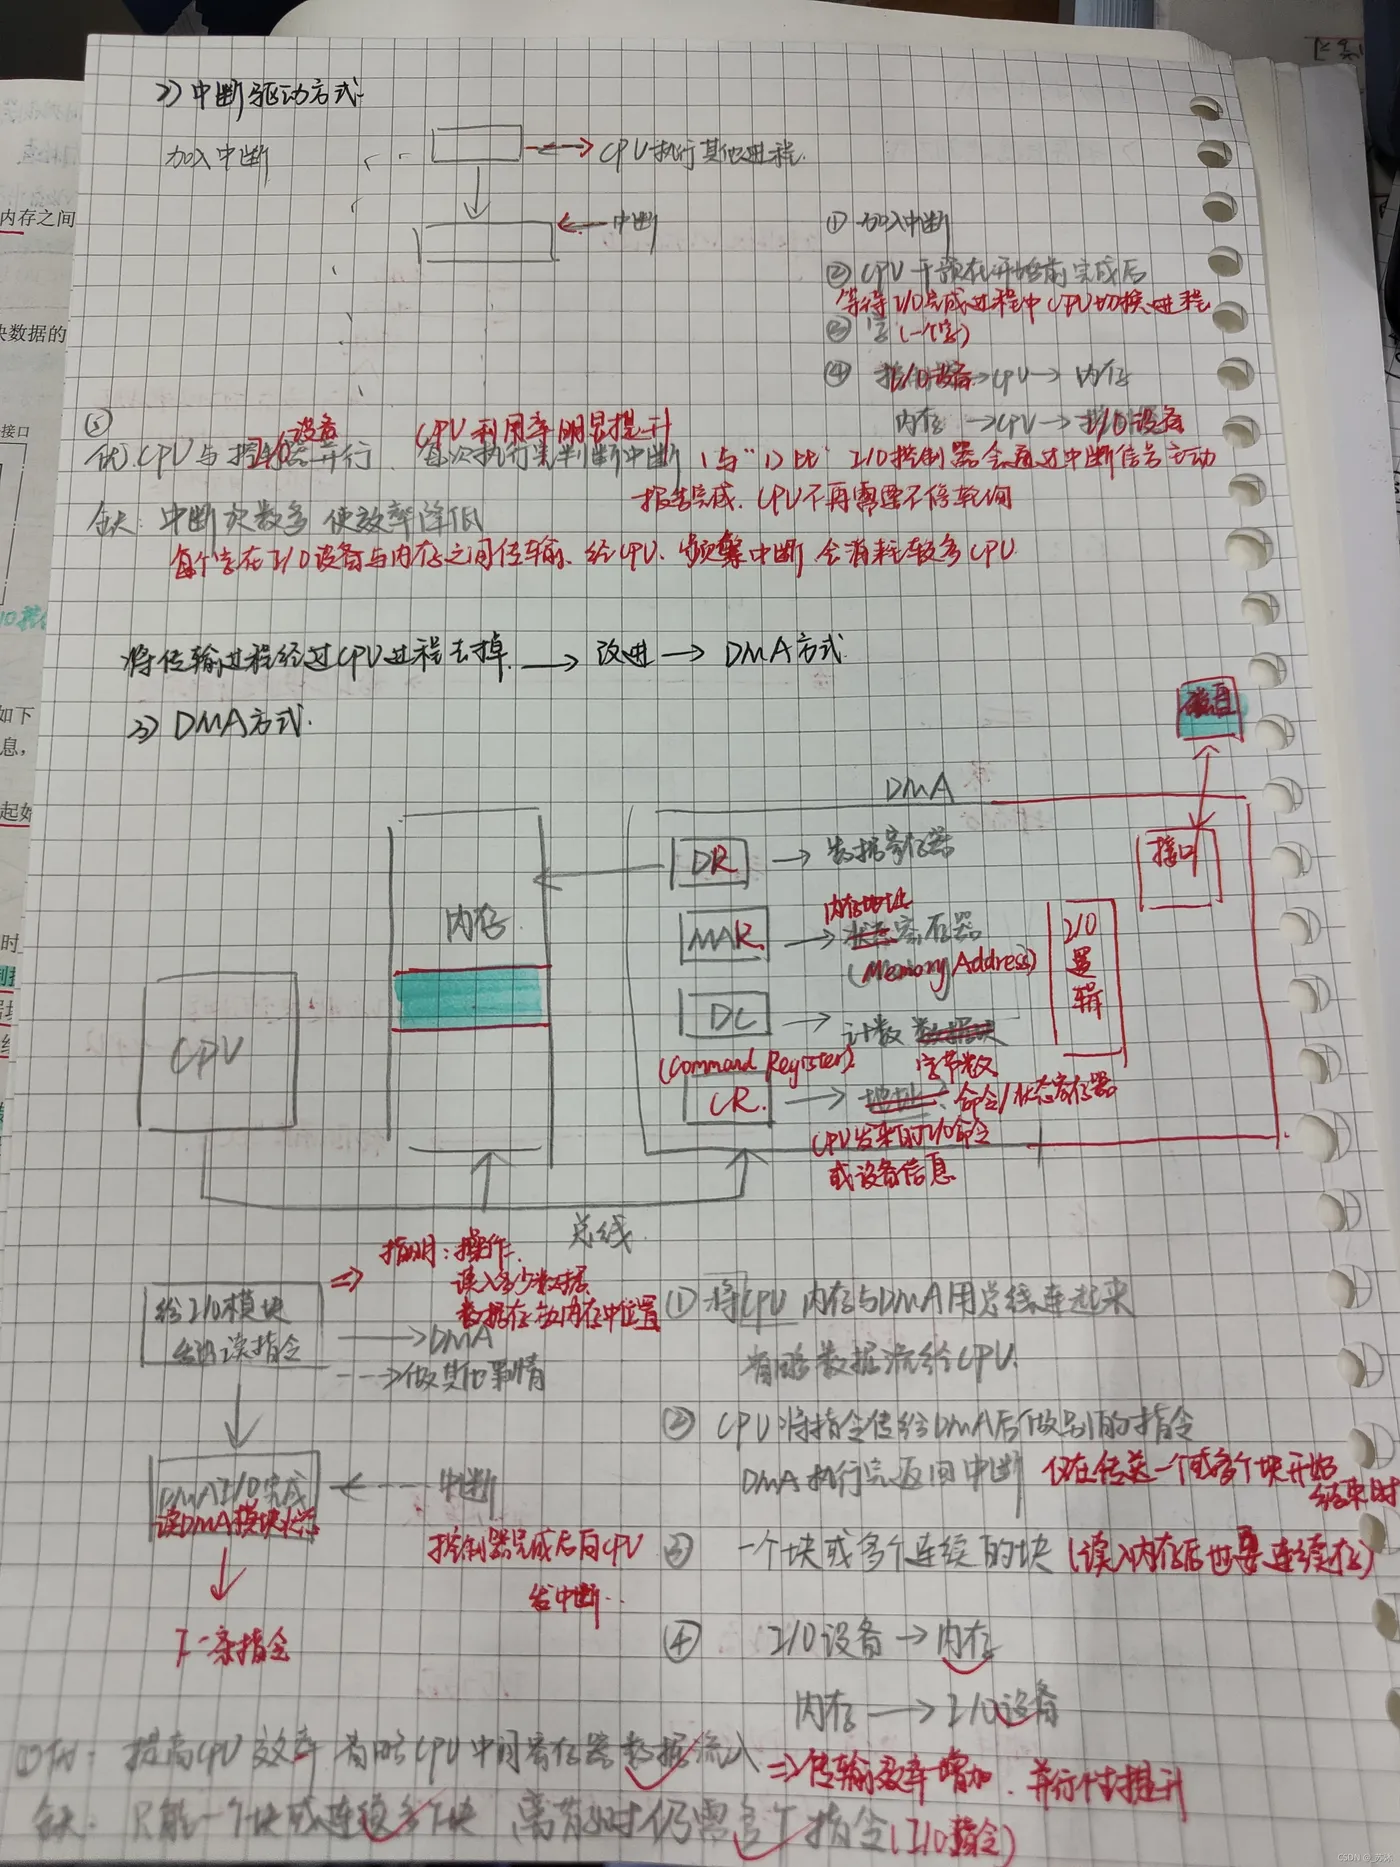 2) 中断驱动方式
加入中断
CPU执行其他进程
中断
① 加入中断
② CPU干预在开始前完成后
等待I/O完成过程中CPU切换进程
③ 字(一个字)
④ I/O设备→CPU→内存
内存→CPU→I/O设备
⑤
优: CPU与I/O设备并行
CPU利用率明显提升
每次执行完判断中断
(与"1)比" I/O控制器会通过中断信号主动
报告完成. CPU不再需要不停轮询
缺: 中断次数多 使效率降低
每个字在I/O设备与内存之间传输, 经CPU. 频繁中断会消耗较多CPU
将传输过程经过CPU过程去掉 → 改进 → DMA方式
3) DMA方式.
磁盘
DMA
接口
DR → 数据寄存器
内存
内存地址
MAR → 寄存器
(Memory Address)
I/O逻辑
DC → 计数
字节数
(Command Register)
CR. → 命令/状态寄存器
CPU发来的I/O命令
或设备信息
CPU
总线
指明: 操作
读入多少数据
数据存放内存中位置
给I/O模块
发出读指令
→DMA
→做其他事情
DMA I/O完成
读DMA模块状态
中断
控制器完成后向CPU
发中断..
下一条指令
① 将CPU 内存与DMA用总线连起来
省略数据流给CPU.
② CPU将指令传给DMA后做别的指令
DMA执行完返回中断 仅在传送一个或多个块开始
结束时
③ 一个块或多个连续的块 (读入内存后也要连续存)
④ I/O设备→内存
内存→I/O设备
优: 提高CPU效率 省略CPU中间寄存器数据流入
⇒传输效率增加. 并行性提升
缺: 只能一个块或连续多个块 离散时仍需多个指令(I/O指令)
CSDN @_苏沐